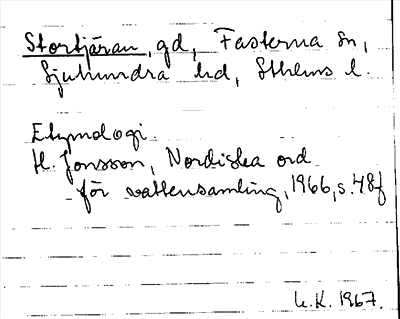 Stortjäran, gd, Fasterna sn,
Sjuhundra hd, Sthlms l.
Etymologi
H. Jonsson, Nordiska ord
för vattensamling, 1966, s. 48f
L.K. 1967.